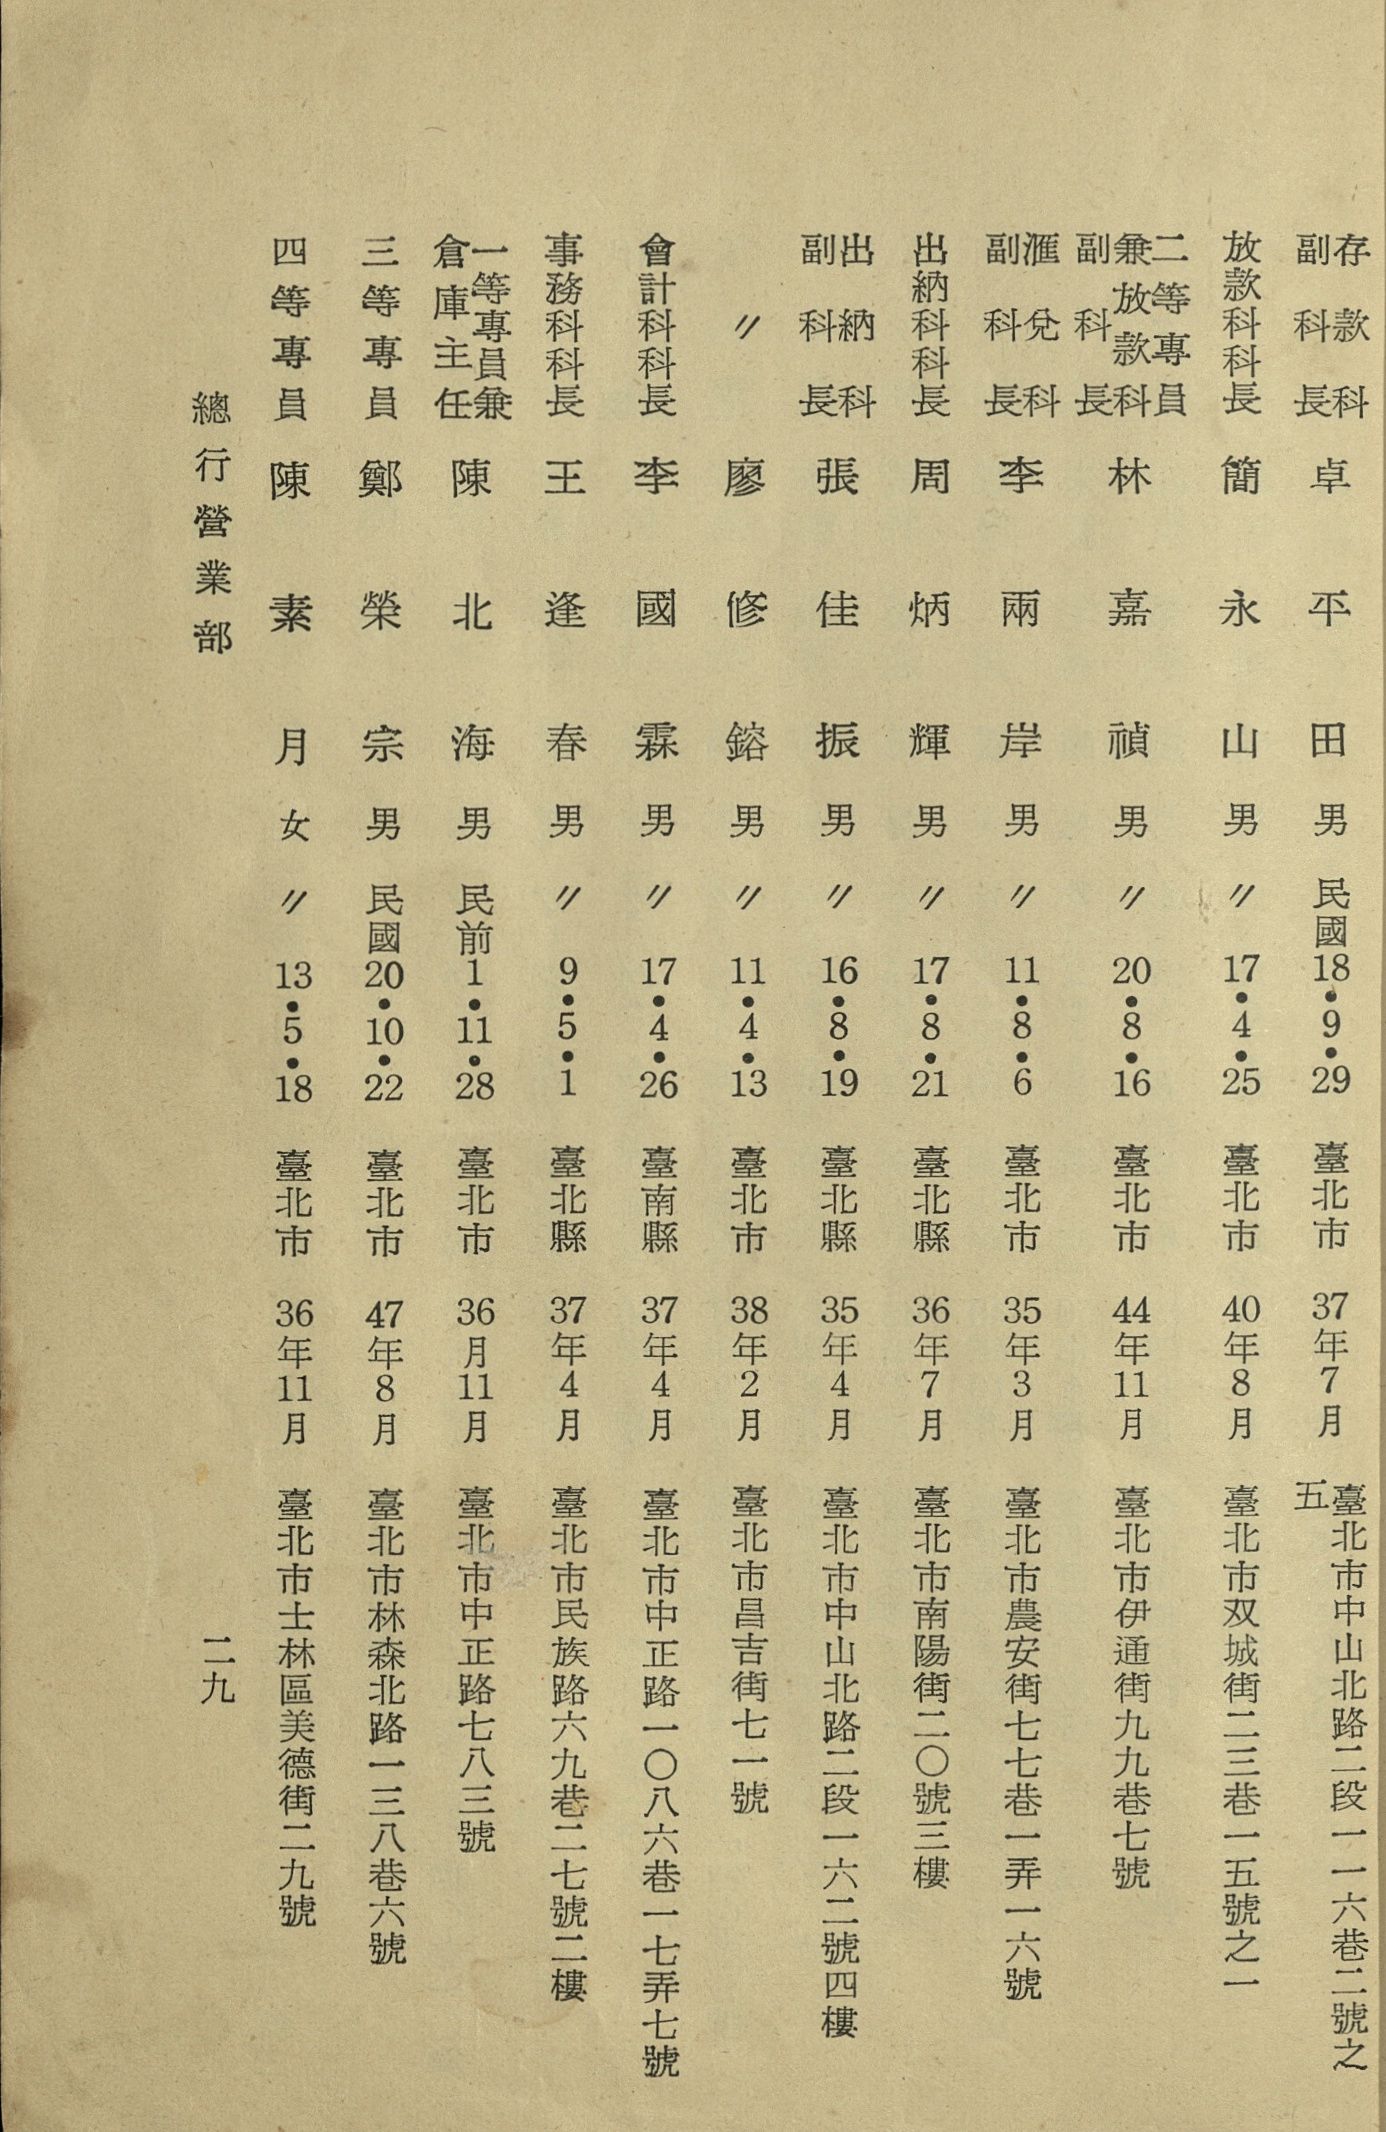 存款科副科長 卓平田 男 民國18•9•29 臺北市 37年7月 臺北市中山北路二段一一六巷二號之五
放款科科長 簡永山 男 〃17•4•25 臺北市 40年8月 臺北市双城街二三巷一五號之一
二等專員兼放款科副科長 林嘉禎 男 〃20•8•16 臺北市 44年11月 臺北市伊通街九九巷七號
滙兌科副科長 李兩岸 男 〃11•8•6 臺北市 35年3月 臺北市農安街七七巷一弄一六號
出納科科長 周炳輝 男 〃17•8•21 臺北縣 36年7月 臺北市南陽街二〇號三樓
出納科副科長 張佳振 男 〃16•8•19 臺北縣 35年4月 臺北市中山北路二段一六二號四樓
〃 廖修鎔 男 〃11•4•13 臺北市 38年2月 臺北市昌吉街七一號
會計科科長 李國霖 男 〃17•4•26 臺南縣 37年4月 臺北市中正路一〇八六巷一七弄七號
事務科科長 王逢春 男 〃9•5•1 臺北縣 37年4月 臺北市民族路六九巷二七號二樓
一等專員兼倉庫主任 陳北海 男 民前1•11•28 臺北市 36月11月 臺北市中正路七八三號
三等專員 鄭榮宗 男 民國20•10•22 臺北市 47年8月 臺北市林森北路一三八巷六號
四等專員 陳素月 女 〃13•5•18 臺北市 36年11月 臺北市士林區美德街二九號
總行營業部 二九